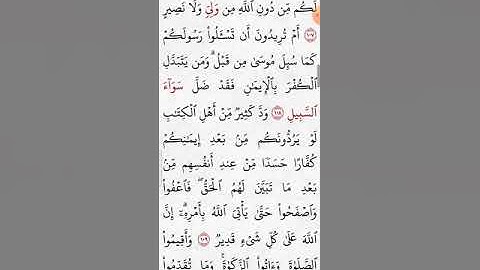 لَكُم مِّن دُونِ ٱللَّهِ مِن وَلِيٍّ وَلَا نَصِيرٍ
١٠٧ أَمْ تُرِيدُونَ أَن تَسْـَٔلُوا۟ رَسُولَكُمْ
كَمَا سُئِلَ مُوسَىٰ مِن قَبْلُ ۗ وَمَن يَتَبَدَّلِ
ٱلْكُفْرَ بِٱلْإِيمَـٰنِ فَقَدْ ضَلَّ سَوَآءَ
ٱلسَّبِيلِ ١٠٨ وَدَّ كَثِيرٌ مِّنْ أَهْلِ ٱلْكِتَـٰبِ
لَوْ يَرُدُّونَكُم مِّنۢ بَعْدِ إِيمَـٰنِكُمْ
كُفَّارًا حَسَدًا مِّنْ عِندِ أَنفُسِهِم مِّنۢ
بَعْدِ مَا تَبَيَّنَ لَهُمُ ٱلْحَقُّ ۖ فَٱعْفُوا۟
وَٱصْفَحُوا۟ حَتَّىٰ يَأْتِىَ ٱللَّهُ بِأَمْرِهِۦٓ ۗ إِنَّ
ٱللَّهَ عَلَىٰ كُلِّ شَىْءٍ قَدِيرٌ ١٠٩ وَأَقِيمُوا۟
ٱلصَّلَوٰةَ وَءَاتُوا۟ ٱلزَّكَوٰةَ ۚ وَمَا تُقَدِّمُوا۟